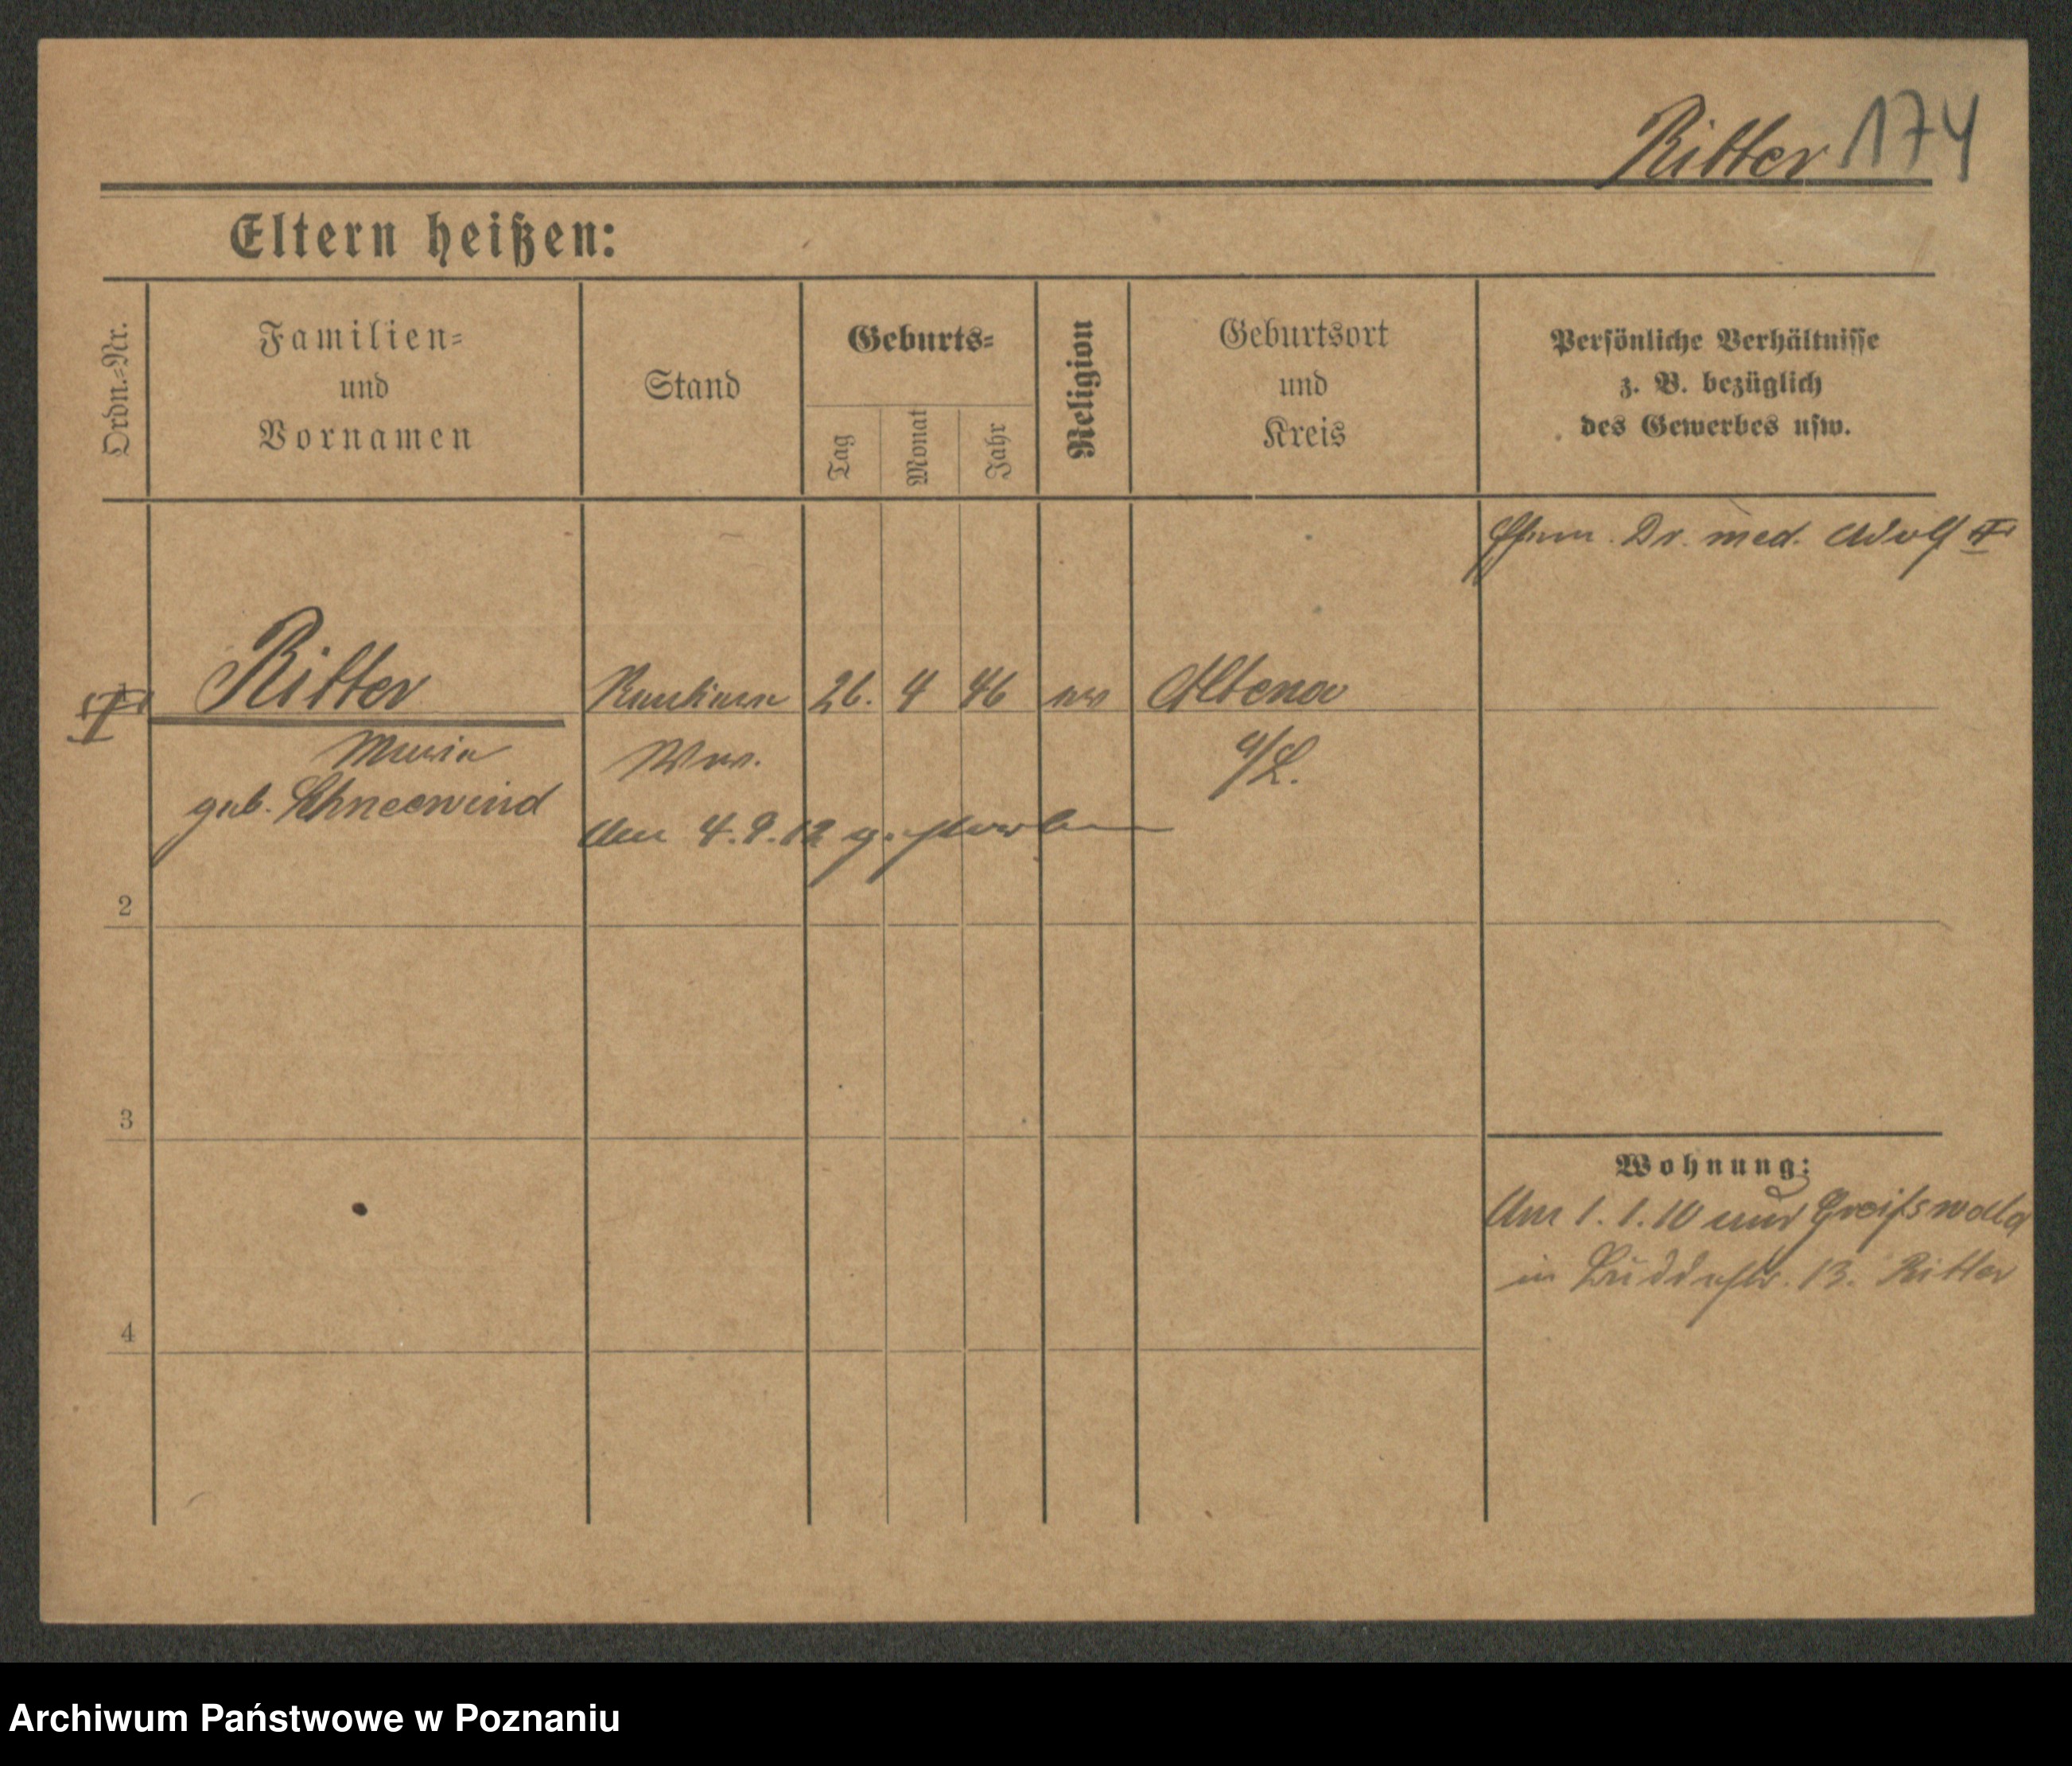 Ritter 174
Eltern heißen:
Ordn.-Nr.
Familien-
und
Vornamen
Stand
Geburts-
Tag
Monat
Jahr
Religion
Geburtsort
und
Kreis
Persönliche Verhältnisse
z. B. bezüglich
des Gewerbes usw.
Ehem. Dr. med. Adolf †
1 Ritter Rentiere 26. 4 46 ev Altena
Maria Wwe. a/L.
geb. Schneewind
Am 4.9.12 gestorben
2
3
4
Wohnung:
Am 1.1.10 aus Greifswald
in 13. Ritter
Archiwum Państwowe w Poznaniu